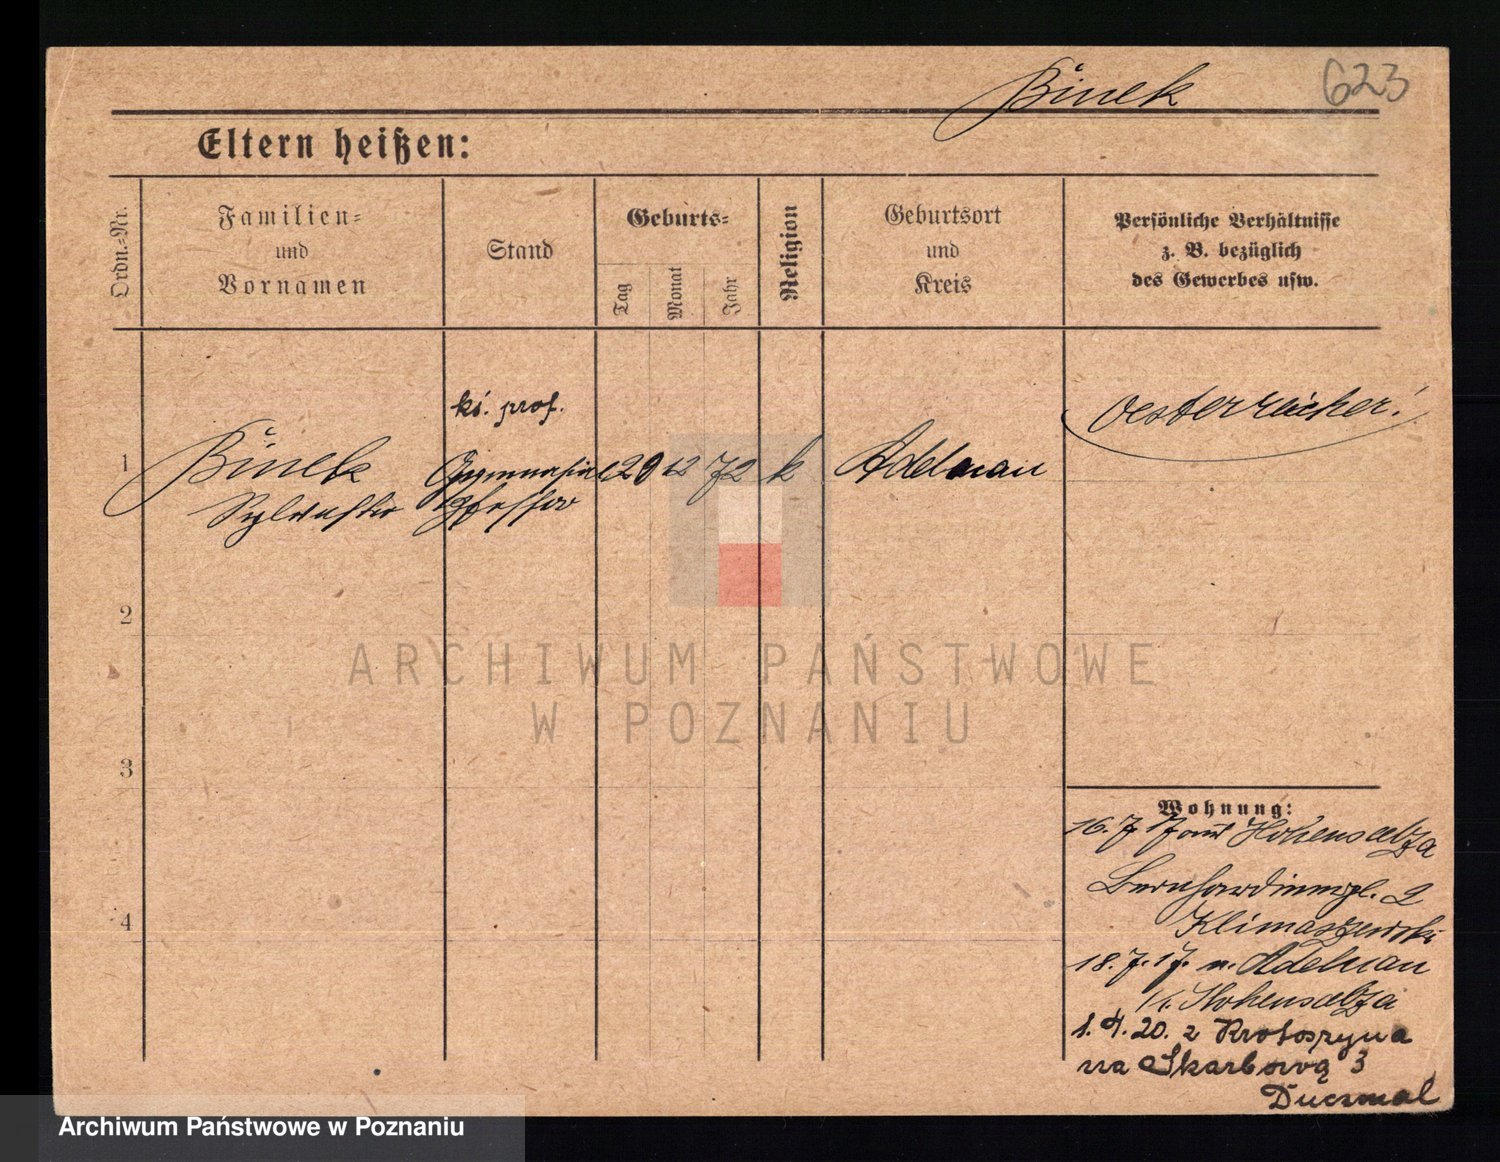 Binek 623
Eltern heißen:
Ordn.=Nr.
Familien=
und
Vornamen
Stand
Geburts=
Tag
Monat
Jahr
Religion
Geburtsort
und
Kreis
Persönliche Verhältnisse
z. B. bezüglich
des Gewerbes usw.
ks. prof.
1 Binek Gymnasial 20 12 72 k Adelnau Oesterreicher!
Sylvester
2
3
4
Wohnung:
16.7.17 aus Hohensalza
Bernhardinerpl. 2
Klimaszewski
18.7.17. n. Adelnau
Hohensalza
1.4.20. z Krotoszyna
na Skarbową 3
Duczmal
ARCHIWUM PAŃSTWOWE
W POZNANIU
Archiwum Państwowe w Poznaniu